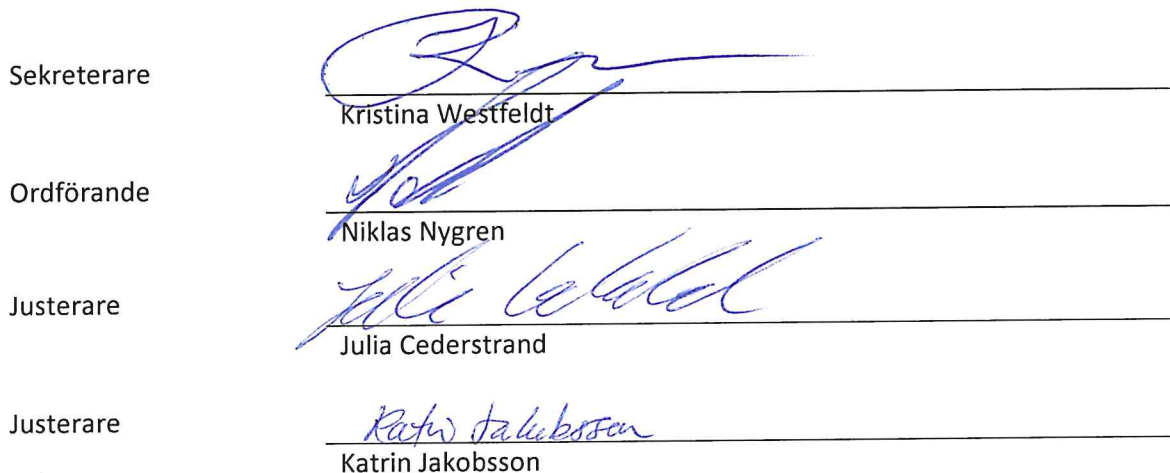 Sekreterare
Kristina Westfeldt
Ordförande
Niklas Nygren
Justerare
Julia Cederstrand
Justerare
Katrin Jakobsson
Katrin Jakobsson